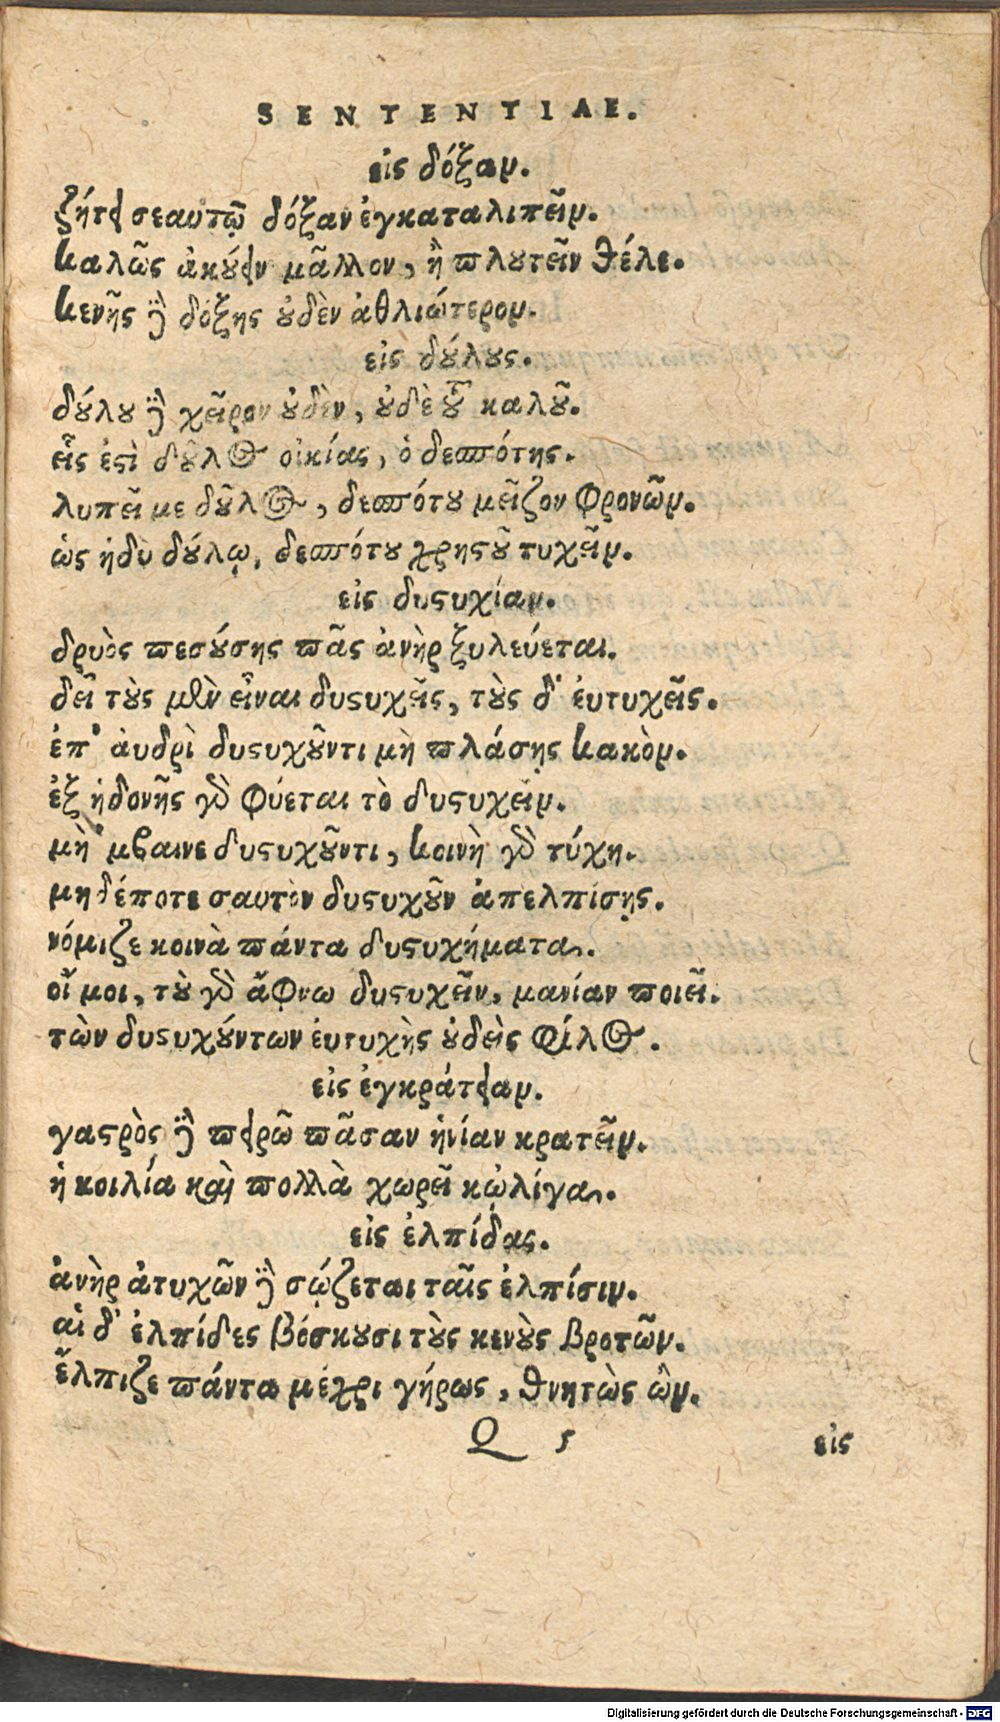 SENTENTIAE.
εἰς δόξαν.
ζήτει σεαυτῷ δόξαν ἐγκαταλιπεῖν.
καλῶς ἀκούειν μᾶλλον, ἢ πλουτεῖν θέλε.
κενῆς δὲ δόξης οὐδὲν ἀθλιώτερον.
εἰς δούλους.
δούλου δὲ χεῖρον οὐδὲν, οὐδὲ τοῦ καλοῦ.
εἷς ἐστὶ δοῦλος οἰκίας, ὁ δεσπότης.
λυπεῖ με δοῦλος, δεσπότου μεῖζον φρονῶν.
ὡς ἡδὺ δούλῳ, δεσπότου χρηστοῦ τυχεῖν.
εἰς δυστυχίαν.
δρυὸς πεσούσης πᾶς ἀνὴρ ξυλεύεται.
δεῖ τοὺς μὲν εἶναι δυστυχεῖς, τοὺς δ' εὐτυχεῖς.
ἐπ' ἀνδρὶ δυστυχοῦντι μὴ πλάσῃς κακὸν.
ἐξ ἡδονῆς γὰρ φύεται τὸ δυστυχεῖν.
μὴ 'μβαινε δυστυχοῦντι, κοινὴ γὰρ τύχη.
μηδέποτε σαυτὸν δυστυχοῦν ἀπελπίσῃς.
νόμιζε κοινὰ πάντα δυστυχήματα.
οἴ μοι, τὸ γὰρ ἄφνω δυστυχεῖν, μανίαν ποιεῖ.
τῶν δυστυχούντων εὐτυχὴς οὐδεὶς φίλος.
εἰς ἐγκράτειαν.
γαστρὸς δὲ πειρῶ πᾶσαν ἡνίαν κρατεῖν.
ἡ κοιλία καὶ πολλὰ χωρεῖ κᾠλίγα.
εἰς ἐλπίδας.
ἀνὴρ ἀτυχῶν δὲ σῴζεται ταῖς ἐλπίσιν.
αἱ δ' ἐλπίδες βόσκουσι τοὺς κενοὺς βροτῶν.
ἔλπιζε πάντα μέχρι γήρως, θνητὸς ὢν.
Q 5 εἰς
Digitalisierung gefördert durch die Deutsche Forschungsgemeinschaft - DFG